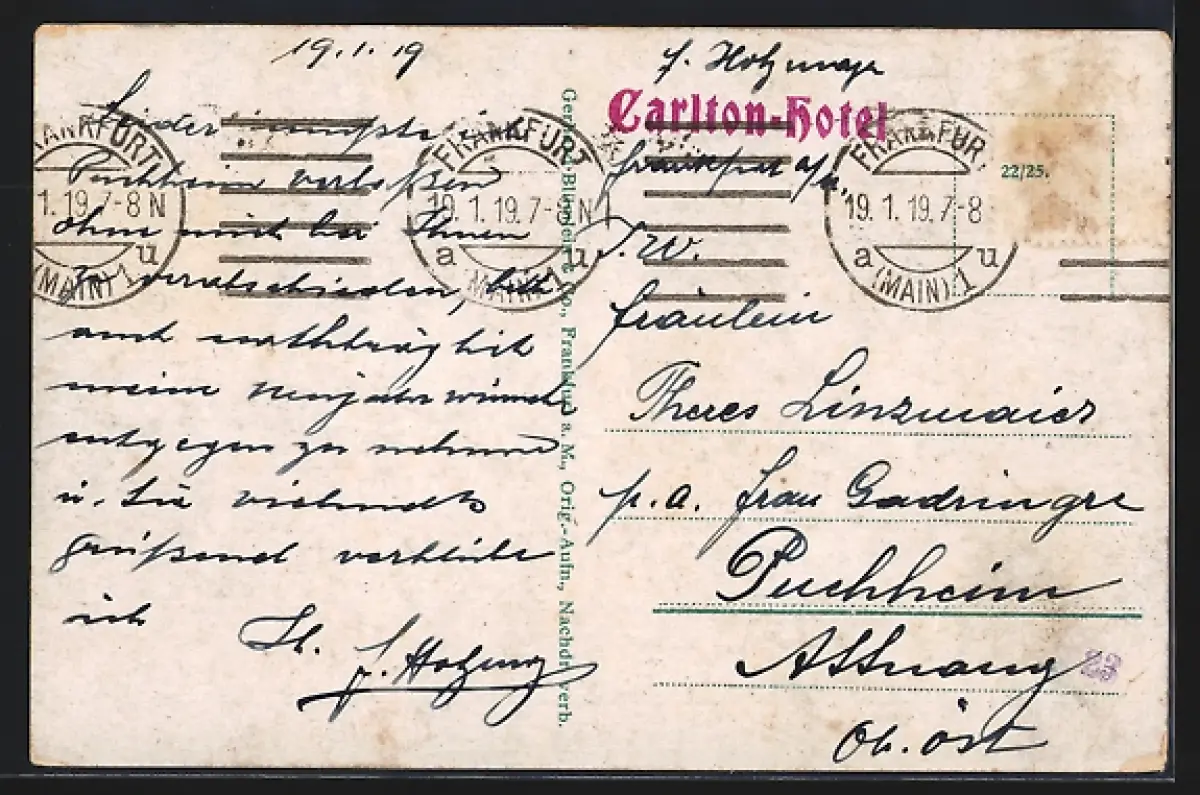 19.1.19
Leider musste ich
Puchheim verlaßen
ohne mich bei Ihnen
zu verabschieden, bitte
auch nachträglich
meine Neujahrwünsche
entgegen zu nehmen
u. Sie vielmals
grüßend verbleibe
ich
J. Holzmayr
Carlton-Hotel
Frankfurt a/M.
Fräulein
Theres Linzmaier
p.a. Frau Gadringer
Puchheim
Attnang
Ob. öst
22/25.
23
FRANKFURT
19.1.19.7-8N
a u
(MAIN) 1
FRANKFURT
19.1.19.7-8N
a u
(MAIN) 1
FRANKFUR
19.1.19.7-8
a u
(MAIN) 1
Frankfurt a. M., Orig.-Aufn., Nachdr. verb.